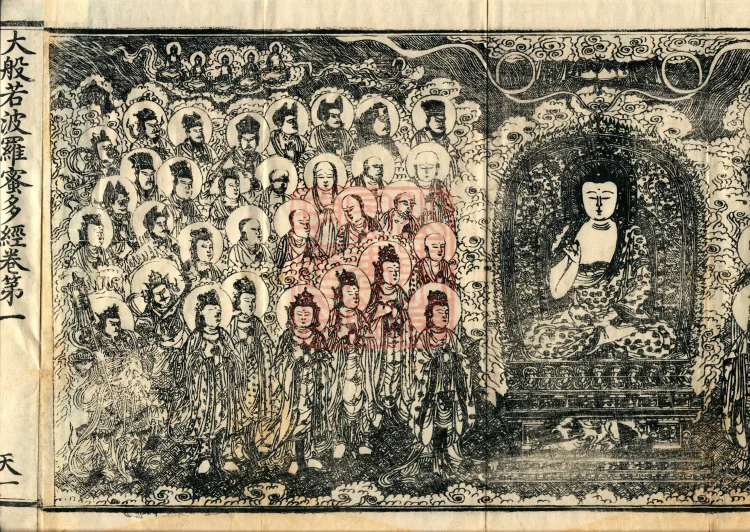 大般若波羅蜜多經卷第一
天一